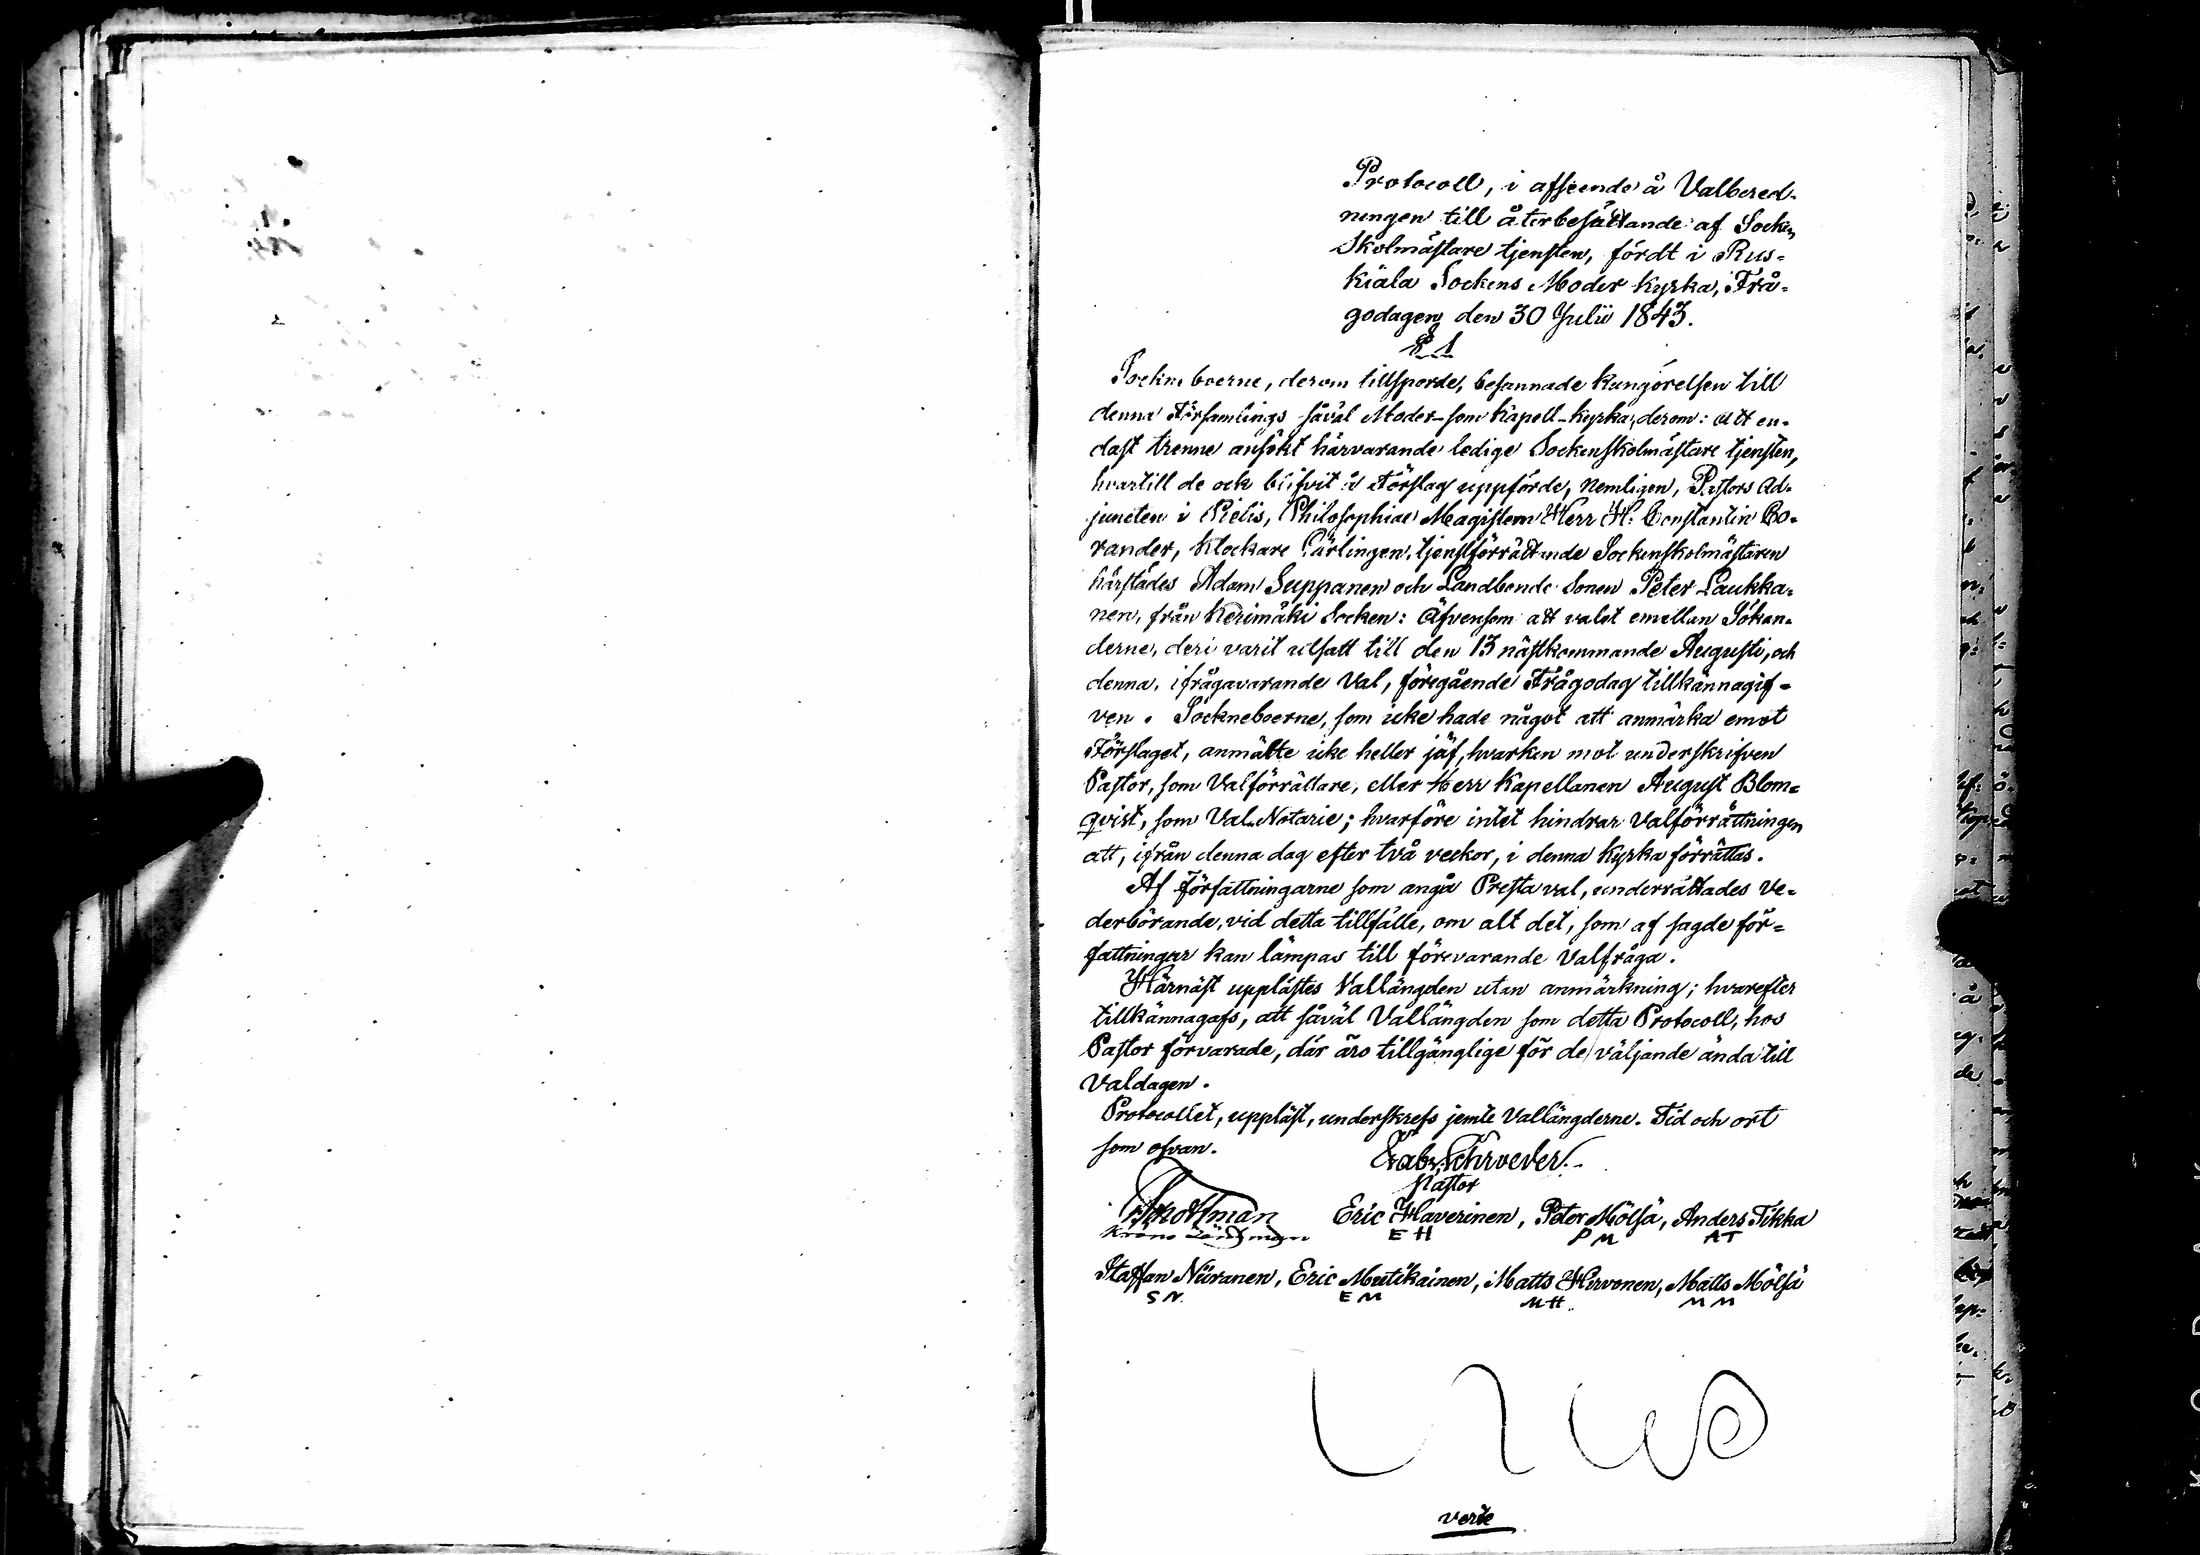 Protocoll, i afseende å Valbered-
ningen till återbesättande af Socken
Skolmästare tjensten, fördt i Rus-
kiala Sockens Moder kyrka, Frå-
godagen den 30 Julii 1843.
§ 1
Sockneboerne, derom tillsporde, besannade kungörelsen till
denna Församlings såväl Moder- som kapell-kyrka, derom: att en-
dast trenne ansökt härvarande ledige Sockenskolmästare tjensten,
hvartill de ock blifvit å Förslag uppförde, nemligen, Pastors Ad-
juncten i Pielis, Philosophiae Magistern Herr H: Constantin Bo-
rander, Klockare Lärlingen, tjenstförrättande Sockenskolmästaren
härstädes Adam Suppanen och Landbonde Sonen Peter Laukka-
nen, från Kerimäki Socken: Äfvensom att valet emellan Sökan-
derne, deri varit utsatt till den 13 nästkommande Augusti, och
denna, ifrågavarande Val, föregående Frågodag tillkännagif-
ven. Sockneboerne, som icke hade något att anmärka emot
Förslaget, anmälte icke heller jäf, hvarken mot underskrifven
Pastor, som Valförrättare, eller Herr Kapellanen August Blom-
qvist, som Val-Notarie; hvarföre intet hindrar Valförrättningen
att, ifrån denna dag efter två veckor, i denna kyrka förrättas.
Af Författningarne som angå Prestaval, underrättades ve-
derbörande, vid detta tillfälle, om alt det, som af sagde för-
fattningar kan lämpas till förevarande Valfråga.
Härnäst upplästes Vallängden utan anmärkning; hvarefter
tillkännagafs, att såväl Vallängden som detta Protocoll, hos
Pastor förvarade, där äro tillgänglige för de väljande ända till
Valdagen.
Protocollet, uppläst, underskrefs jemte Vallängderne. Tid och ort
som ofvan.
Schroeder.
Pastor
Eric Haverinen, Peter Mölsä, Anders Tikka
Krono Länsman E H P M A T
Staffan Niiranen, Eric Mutikainen, Matts Hirvonen, Matts Mölsä
S N. E M M H. M M
verte
KODAK